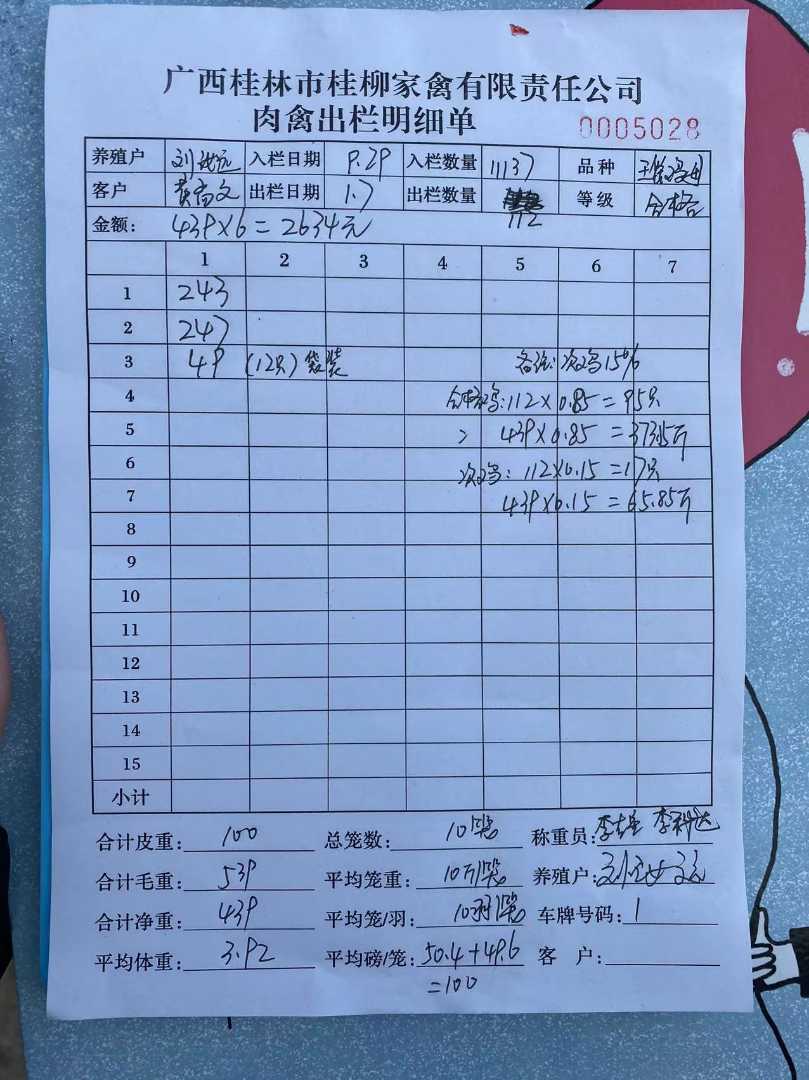 广西桂林市桂柳家禽有限责任公司
肉禽出栏明细单 0005028
养殖户 入栏日期 9.29 入栏数量 11137 品种
客户 黄富文 出栏日期 1.7 出栏数量 112 等级 合格
金额: 439×6=2634元
1 2 3 4 5 6 7
1 243
2 247
3 49 (12只) 袋装 备注:次鸡15%
4 合格鸡:112×0.85=95只
5 439×0.85=373.15斤
6 次鸡:112×0.15=17只
7 439×0.15=65.85斤
8
9
10
11
12
13
14
15
小计
合计皮重: 100 总笼数: 10笼 称重员: 李科达
合计毛重: 539 平均笼重: 10斤/笼 养殖户:
合计净重: 439 平均笼/羽: 10羽/笼 车牌号码: 1
平均体重: 3.92 平均磅/笼: 50.4+49.6 客户:
=100